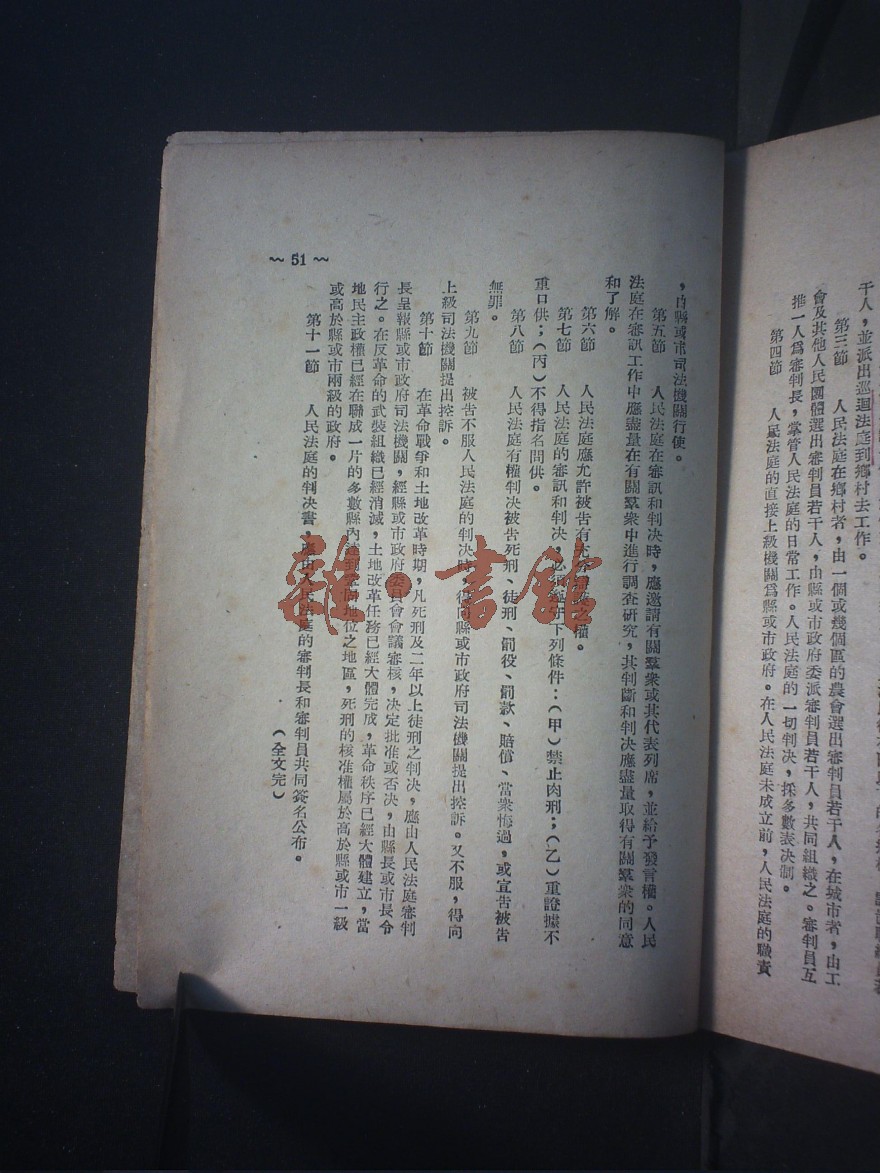 千人，並派出巡迴法庭到鄉村去工作。
第三節　人民法庭在鄉村者，由一個或幾個區的農會選出審判員若干人，在城市者，由工
會及其他人民團體選出審判員若干人，由縣或市政府委派審判員若干人，共同組織之。審判員互
推一人爲審判長，掌管人民法庭的日常工作。人民法庭的一切判決，採多數表決制。
第四節　人民法庭的直接上級機關爲縣或市政府。在人民法庭未成立前，人民法庭的職責
，由縣或市司法機關行使。
第五節　人民法庭在審訊和判決時，應邀請有關羣衆或其代表列席，並給予發言權。人民
法庭在審訊工作中應盡量在有關羣衆中進行調查研究，其判斷和判決應盡量取得有關羣衆的同意
和了解。
第六節　人民法庭應允許被告有充分辯護之權。
第七節　人民法庭的審訊和判決，必須遵守下列條件：（甲）禁止肉刑；（乙）重證據不
重口供；（丙）不得指名問供。
第八節　人民法庭有權判決被告死刑、徒刑、罰役、罰款、賠償、當衆悔過，或宣告被告
無罪。
第九節　被告不服人民法庭的判決時，得向縣或市政府司法機關提出控訴。又不服，得向
上級司法機關提出控訴。
第十節　在革命戰爭和土地改革時期，凡死刑及二年以上徒刑之判決，應由人民法庭審判
長呈報縣或市政府司法機關，經縣或市政府委員會會議審核，決定批准或否決，由縣長或市長令
行之。在反革命的武裝組織已經消滅，土地改革任務已經大體完成，革命秩序已經大體建立，當
地民主政權已經在聯成一片的多數縣內達到鞏固地位之地區，死刑的核准權屬於高於縣或市一級
或高於縣或市兩級的政府。
第十一節　人民法庭的判決書，應由人民法庭的審判長和審判員共同簽名公布。
（全文完）
～ 51 ～
雜·書館